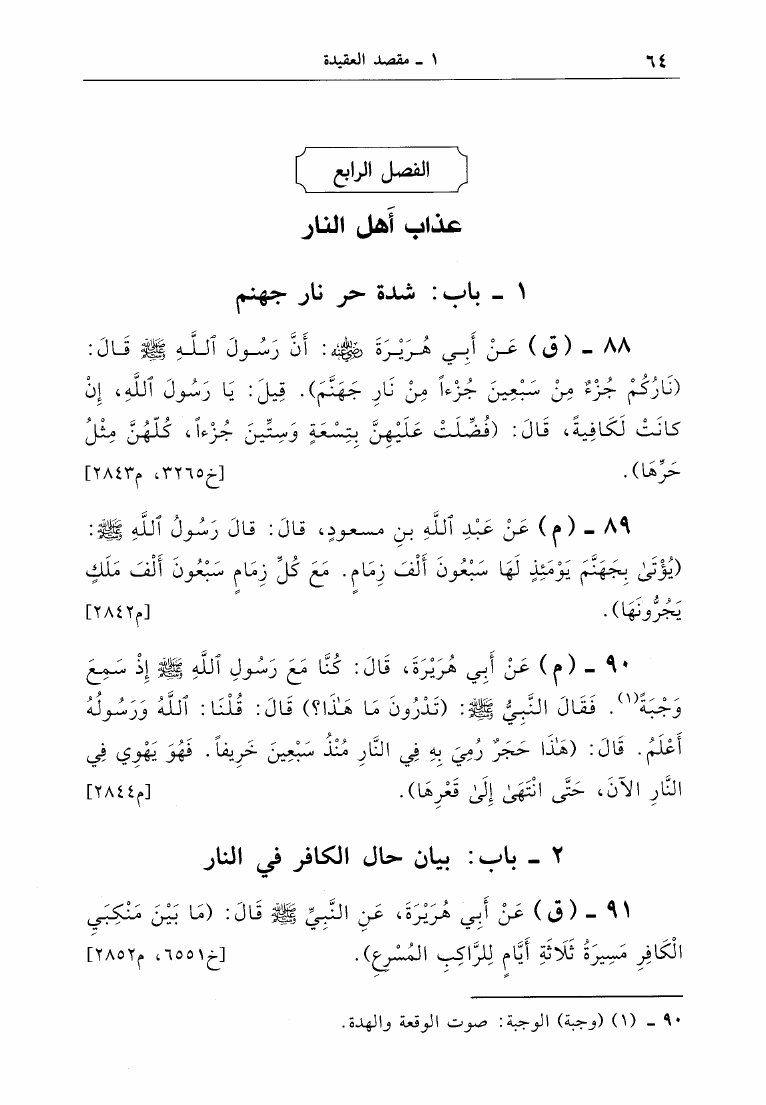 ٦٤ ١ ـ مقصد العقيدة
الفصل الرابع
عذاب أَهل النار
١ ـ باب: شدة حر نار جهنم
٨٨ ـ (ق) عَنْ أَبِي هُرَيْرَةَ رضي الله عنه: أَنَّ رَسُولَ ٱللَّهِ ﷺ قَالَ:
(نَارُكُمْ جُزْءٌ مِنْ سَبْعِينَ جُزْءاً مِنْ نَارِ جَهَنَّمَ). قِيلَ: يَا رَسُولَ ٱللَّهِ، إِنْ
كَانَتْ لَكَافِيةً، قَالَ: (فُضِّلَتْ عَلَيْهِنَّ بِتِسْعَةٍ وَسِتِّينَ جُزْءاً، كُلُّهُنَّ مِثْلُ
حَرِّهَا). [خ٣٢٦٥، م٢٨٤٣]
٨٩ ـ (م) عَنْ عَبْدِ ٱللَّهِ بنِ مسعودٍ، قالَ: قالَ رَسُولُ ٱللَّهِ ﷺ:
(يُؤْتَىٰ بِجَهَنَّمَ يَوْمَئِذٍ لَهَا سَبْعُونَ أَلْفَ زِمَامٍ. مَعَ كُلِّ زِمَامٍ سَبْعُونَ أَلْفَ مَلَكٍ
يَجُرُّونَهَا). [م٢٨٤٢]
٩٠ ـ (م) عَنْ أَبِي هُرَيْرَةَ، قَالَ: كُنَّا مَعَ رَسُولِ ٱللَّهِ ﷺ إِذْ سَمِعَ
وَجْبَةً(١). فَقَالَ النَّبِيُّ ﷺ: (تَدْرُونَ مَا هَـٰذَا؟) قَالَ: قُلْنَا: ٱللَّهُ وَرَسُولُهُ
أَعْلَمُ. قَالَ: (هَـٰذَا حَجَرٌ رُمِيَ بِهِ فِي النَّارِ مُنْذُ سَبْعِينَ خَرِيفاً. فَهُوَ يَهْوِي فِي
النَّارِ الآنَ، حَتَّى انْتَهَىٰ إِلَىٰ قَعْرِهَا). [م٢٨٤٤]
٢ ـ باب: بيان حال الكافر في النار
٩١ ـ (ق) عَنْ أَبِي هُرَيْرَةَ، عَنِ النَّبِيِّ ﷺ قَالَ: (مَا بَيْنَ مَنْكِبَيِ
الْكَافِرِ مَسِيرَةُ ثَلَاثَةِ أَيَّامٍ لِلرَّاكِبِ المُسْرِعِ). [خ٦٥٥١، م٢٨٥٢]
٩٠ ـ (١) (وجبة) الوجبة: صوت الوقعة والهدة.